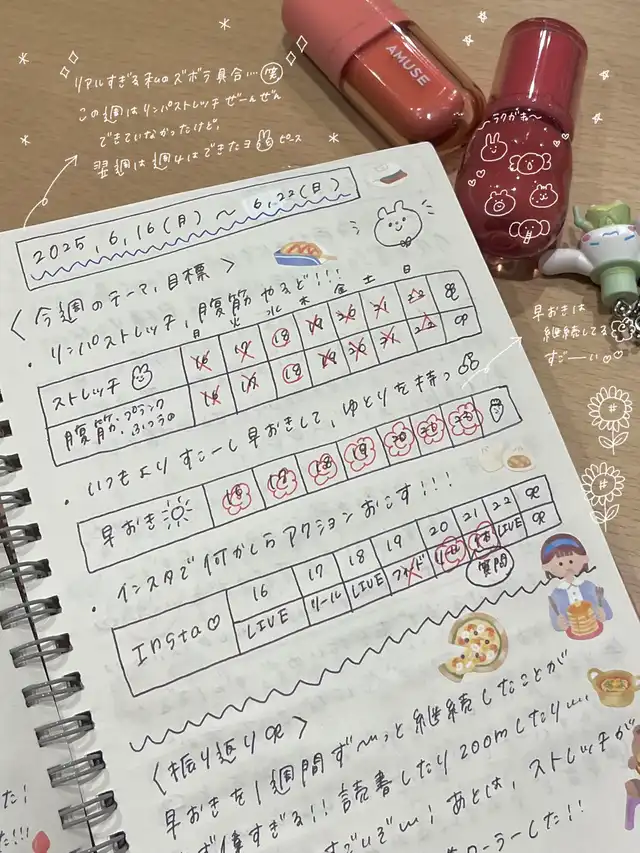 リアルすぎる私のズボラ具合…笑
この週はリンパストレッチぜーんぜん
できていなかったけど、
翌週は週4はできたヨ ピース
AMUSE
ラクがき〜
2025, 6, 16(月) 〜 6, 22(日)
〈今週のテーマ, 目標〉
・リンパストレッチ, 腹筋やるど!!!
月 火 水 木 金 土 日
ストレッチ 16 17 18 19 20 21 22
腹筋, プランク ふつうの 16 17 18 19 20 21 22
早おきは
継続してる
すご〜い♡♡
・いつもよりすこーし早おきして, ゆとりを持つ
早おき 16 17 18 19 20 21 22
・インスタで何かしらアクションおこす!!!
Insta♡ 16 17 18 19 20 21 22
LIVE リール LIVE フィード リール LIVE
質問
〈振り返り〉
早おきを1週間ず〜っと継続したことが
偉すぎる!! 読書したり200mしたり…
すごいぞ〜! あとは, ストレッチが
ローラーした!!